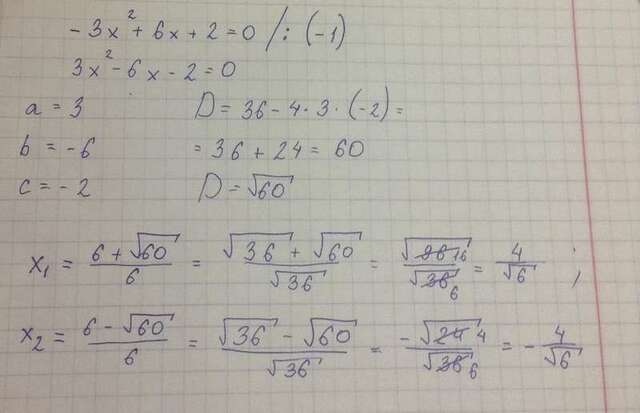 -3x² + 6x + 2 = 0 /: (-1)
3x² - 6x - 2 = 0
a = 3 D = 36 - 4 · 3 · (-2) =
b = -6 = 36 + 24 = 60
c = -2 D = √60
x₁ = (6 + √60)/6 = (√36 + √60)/√36 = √96 16/√36 6 = 4/√6 ;
x₂ = (6 - √60)/6 = (√36 - √60)/√36 = -√24 4/√36 6 = - 4/√6